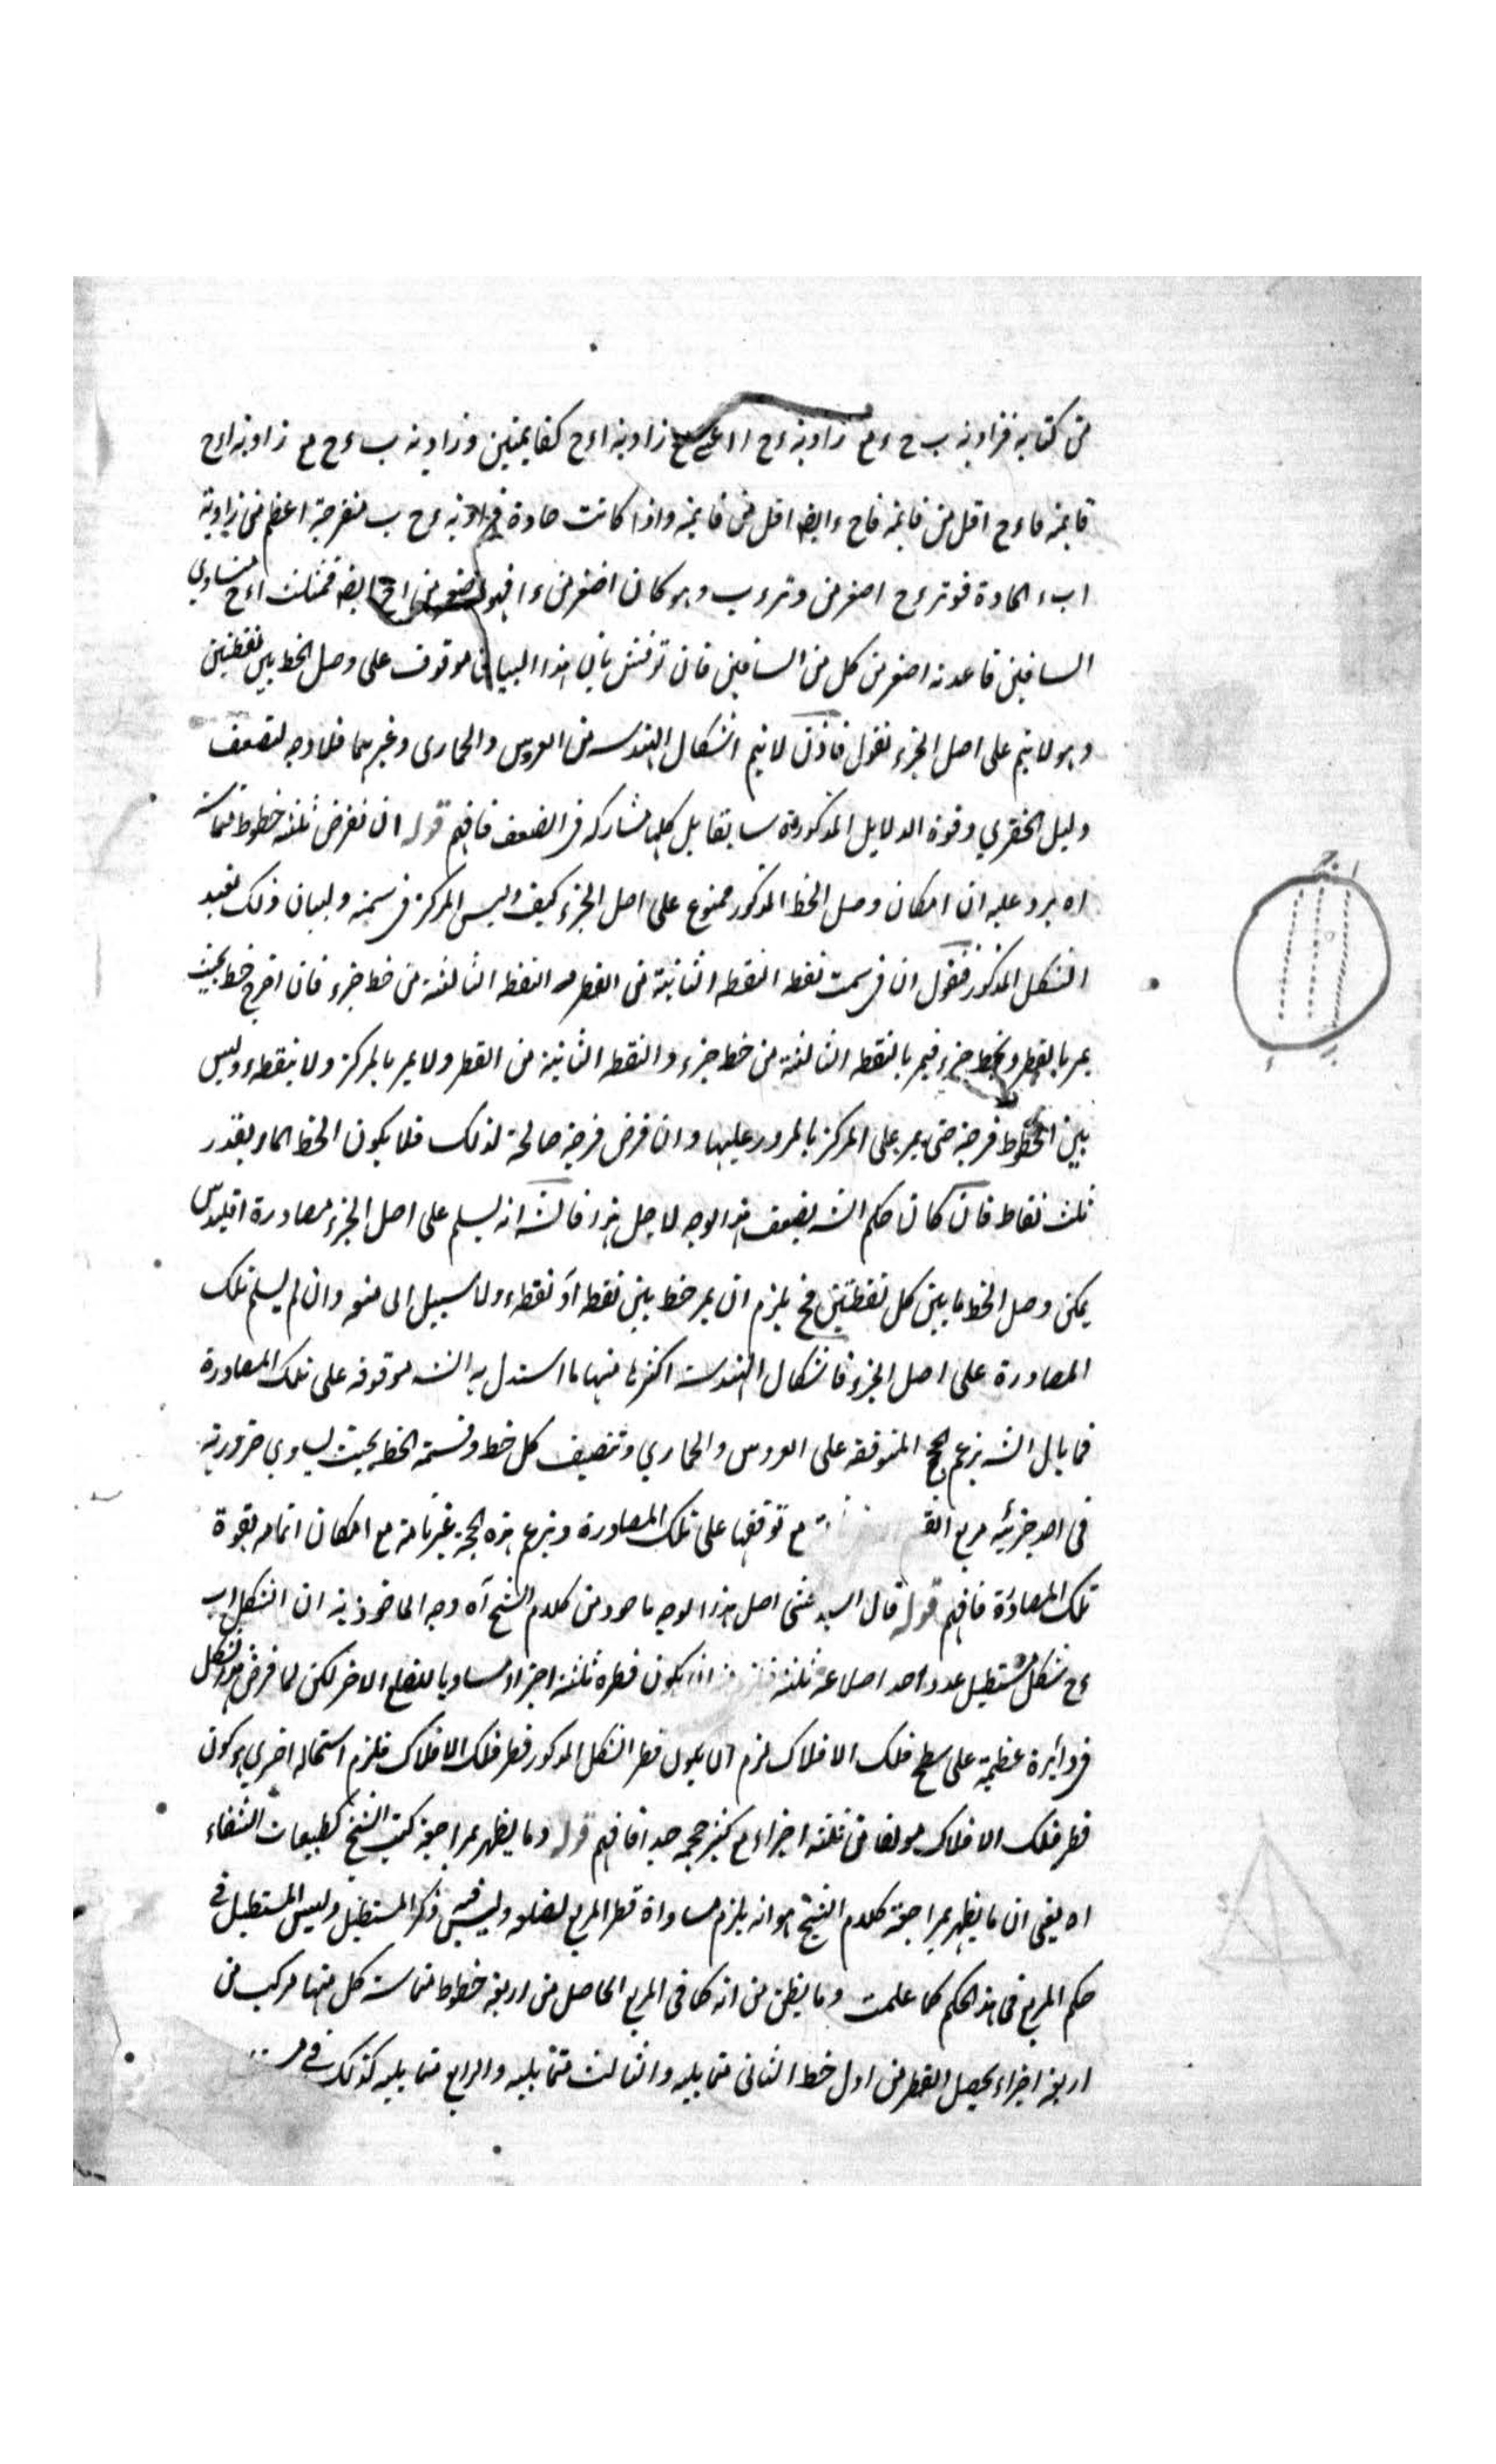 من كتابه فزاوية ب ح ء مع زاوية ء ح ا زاوية ا ء ح كقايمتين وزاوية ب ء ح مع زاوية ا ء ح
قايمة فا ء ح اقل من قايمة فا ح ء ايضا اقل من قايمة واذا كانت حادة فزاوية ء ح ب منفرجة اعظم من زاوية
ا ب ء الحادة فوتر ء ح اصغر من وتر ء ب وهو كان اصغر من ء ا فهو اصغر من ا ح ايضا فمثلث ا ء ح متساوي
الساقين قاعدته اصغر من كل من الساقين فان نوقش بان هذا البيان موقوف على وصل الخط بين نقطتين
وهو لا يتم على اصل الجزء نقول فاذن لا يتم اشكال الهندسه من العروس والحماري وغيرهما فلا وجه لتضعيف
دليل الخفري وقوة الدلايل المذكورة سابقا بل كلها مشاركه في الضعف فافهم قوله ان نفرض ثلثه خطوط متماسة
اه يرد عليه ان امكان وصل الخط المذكور ممنوع على اصل الجزء كيف وليس المركز في سمته ولبيان ذلك نعيد
الشكل المذكور فنقول ان في سمت نقطه النقطه الثانية من القطر ثم النقطه الثالثة من خط جزء فان اخرج خط بحيث
يمر بالقطر وبخط جزء فيمر بالنقطه الثالثة من خط جزء والنقطه الثانية من القطر ولا يمر بالمركز ولا بنقطه ء وليس
بين الخطوط فرجة حتى يمر على المركز بالمرور عليها وان فرض فرجة صالحة لذلك فلا يكون الخط المار بقدر
ثلث نقاط فان كان حكم الش بضعف هذا الوجه لاجل هذا فالش انه يسلم على اصل الجزء مصادرة اقليدس
يمكن وصل الخط ما بين كل نقطتين فح يلزم ان يمر خط بين نقطه ا و نقطه ء ولا سبيل الى منعه وان لم يسلم تلك
المصادرة على اصل الجزء فاشكال الهندسة اكثرها منها ما استدل به الش موقوفه على تلك المصادرة
فما بال الش يزعم الحجج المتوقفه على العروس والحماري وتنصيف كل خط وقسمة الخط بحيث يساوي ضرورية
في احد جزئيه مربع القسم مع توقفها على تلك المصادرة ويزعم هذه الحجة غير تامة مع امكان اتمامه بقوة
تلك المصادرة فافهم قوله قال السيد المحشى اصل هذا الوجه ماخوذ من كلام الشيخ آه وجه الماخوذية ان الشكل ا ب
ء ح شكل مستطيل عدد احد اضلاعه ثلثه ان يكون قطره ثلثة اجزاء مساويا للضلع الاخر لكن لما فرض هذا الشكل
في دائرة عظيمة على سطح فلك الافلاك لزم ان يكون قطر الشكل المذكور قطر فلك الافلاك فلزم استحاله اخرى هو كون
قطر فلك الافلاك مولفا من ثلثه اجزاء مع كبر حجمه جدا فافهم قوله وما يظهر بمراجعة كتب الشيخ كطبيعات الشفاء
اه يعني ان ما يظهر بمراجعة كلام الشيخ هو انه يلزم مساواة قطر المربع لضلعه وليس فيه ذكر المستطيل وليس المستطيل في
حكم المربع في هذا الحكم كما علمت وما يظن من انه كما في المربع الحاصل من اربعة خطوط متماسة كل منها مركب من
اربعة اجزاء يحصل القطر من اول خط الثاني مما يليه والثالث مما يليه والرابع مما يليه كذلك في